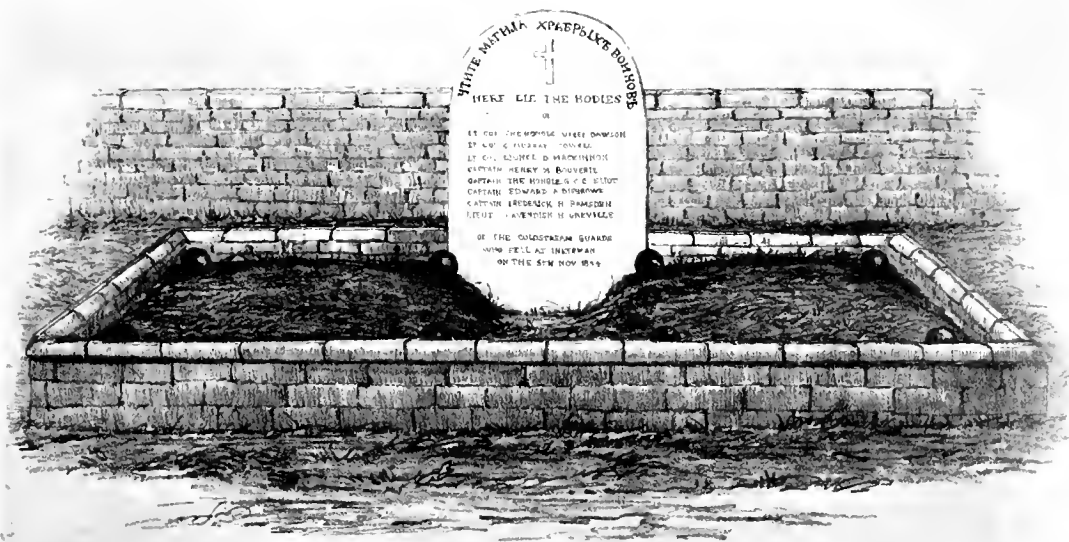 ЧТИТЕ МАГИЛА ХРАБРЫХЪ ВОИНОВЪ
HERE LIE THE BODIES
OF
LT COL THE HONBLE VESEY DAWSON
LT COL C MURRAY COWELL
LT COL LIONEL D MACKINNON
CAPTAIN HENRY M BOUVERIE
CAPTAIN THE HONBLE G C C ELIOT
CAPTAIN EDWARD A DISBROWE
CAPTAIN FREDERICK H RAMSDEN
LIEUT CAVENDISH H GREVILLE
OF THE COLDSTREAM GUARDS
WHO FELL AT INKERMAN
ON THE 5TH NOV 1854